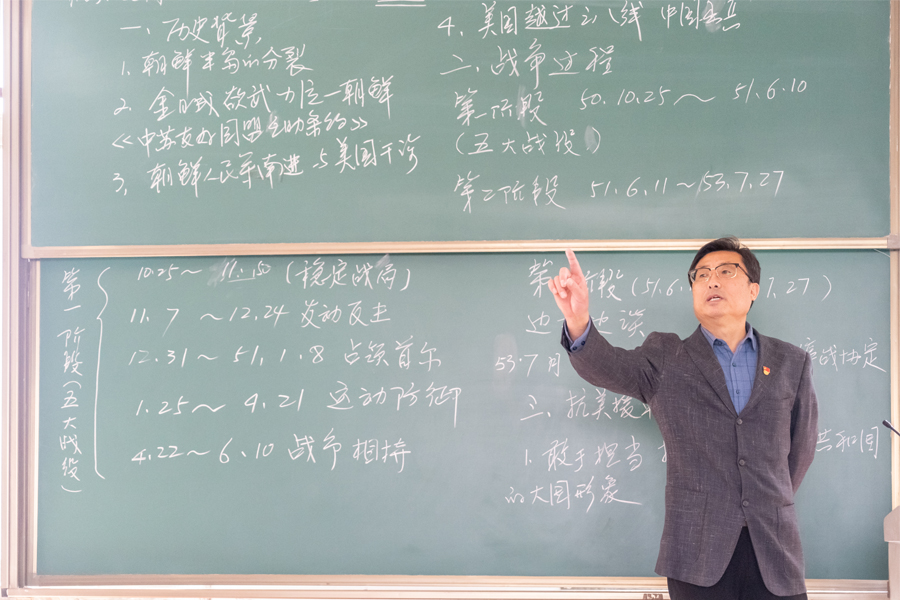 一、历史背景
1. 朝鲜半岛的分裂
2. 金日成欲武力统一朝鲜
《中苏友好同盟互助条约》
3. 朝鲜人民军南进与美国干涉
4. 美国越过三八线 中国出兵
二、战争过程
第一阶段 50.10.25～51.6.10
（五大战役）
第二阶段 51.6.11～53.7.27
第一阶段（五大战役）
10.25～11.5（稳定战局）
11.7～12.24 发动反主
12.31～51.1.8 占领首尔
1.25～4.21 运动防御
4.22～6.10 战争相持
第 阶段（51.6. .27）
边 边谈
53.7月 停战协定
三、抗美援
1. 敢于担当 共和国
的大国形象